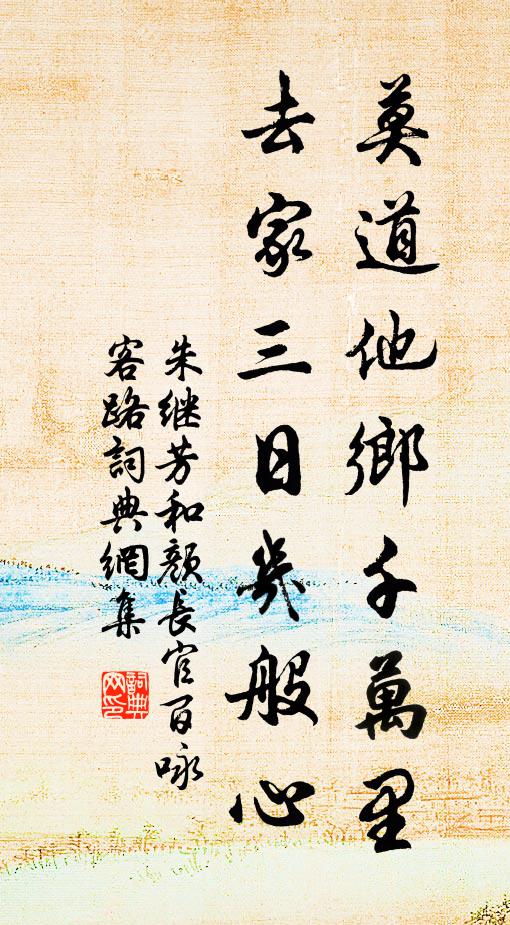 莫道他鄉千萬里
去家三日幾般心
朱继芳和顏長官百咏
客路詞典網集
詞典網印